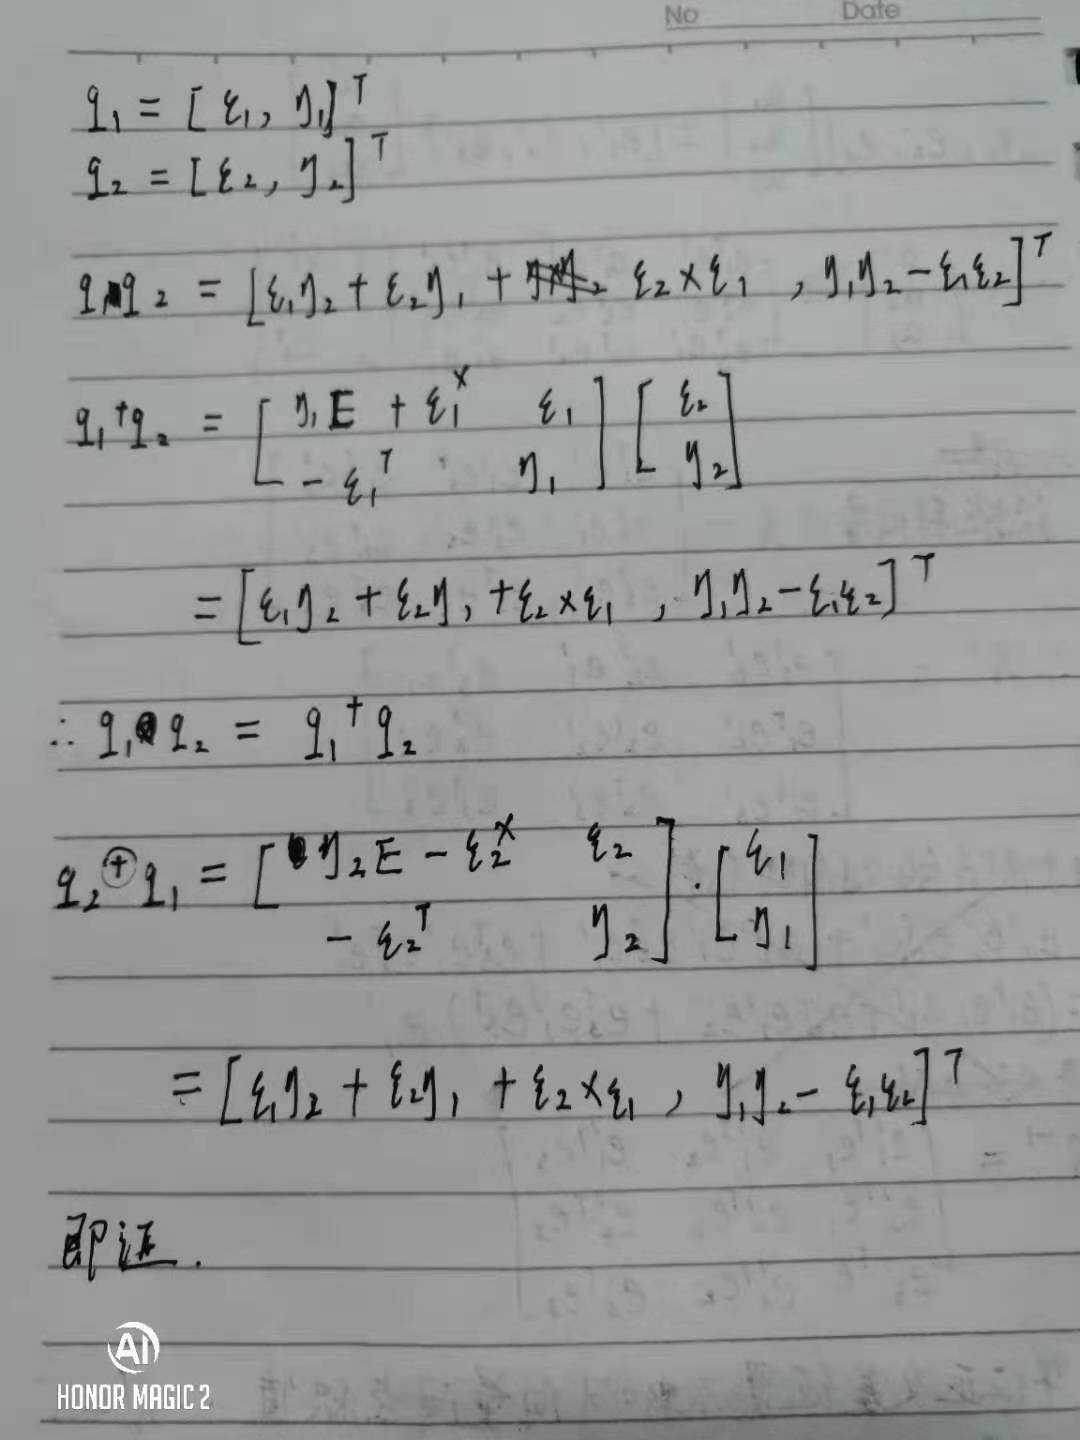 No Date
q₁ = [ε₁, η₁]ᵀ
q₂ = [ε₂, η₂]ᵀ
q₁ q₂ = [ε₁η₂ + ε₂η₁ + ε₂×ε₁ , η₁η₂ - ε₁ε₂]ᵀ
q₁⁺q₂ = [ η₁E + ε₁ˣ ε₁ ] [ ε₂ ]
[ -ε₁ᵀ η₁ ] [ η₂ ]
= [ε₁η₂ + ε₂η₁ + ε₂×ε₁ , η₁η₂ - ε₁ε₂]ᵀ
∴ q₁ q₂ = q₁⁺q₂
q₂⊕q₁ = [ η₂E - ε₂ˣ ε₂ ] · [ ε₁ ]
[ -ε₂ᵀ η₂ ] [ η₁ ]
= [ε₁η₂ + ε₂η₁ + ε₂×ε₁ , η₁η₂ - ε₁ε₂]ᵀ
即证.
AI
HONOR MAGIC 2